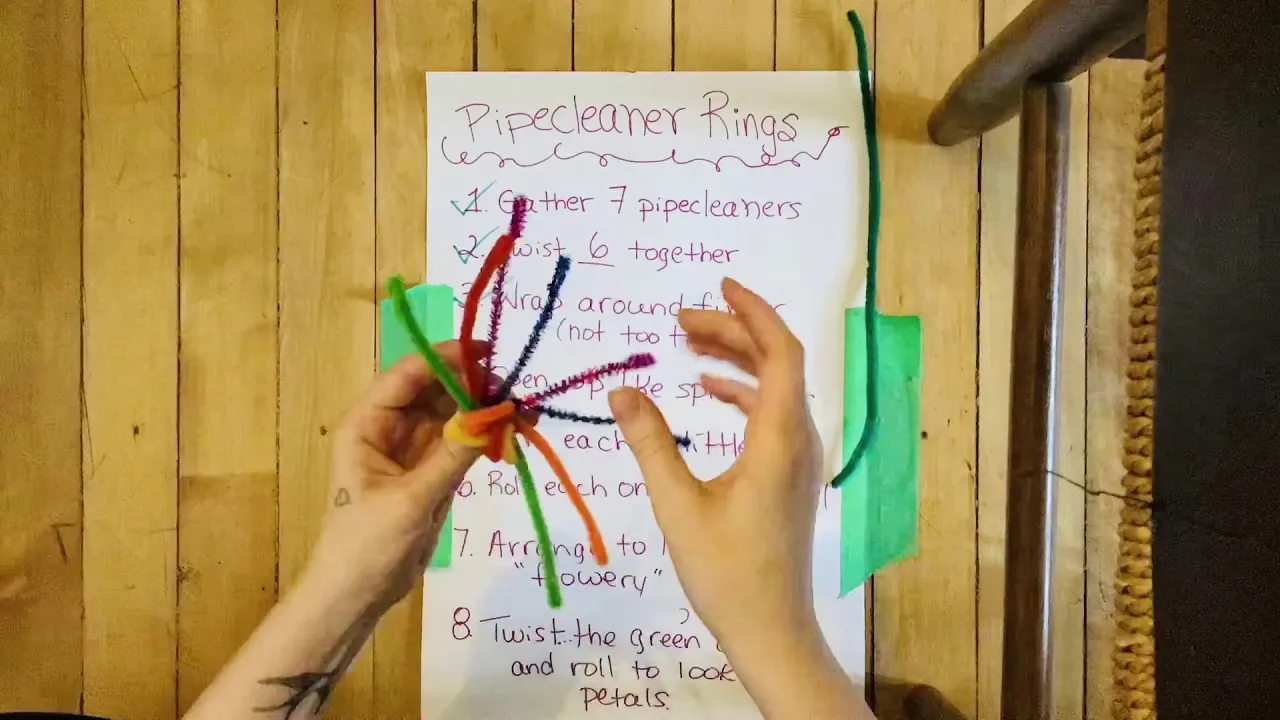 Pipecleaner Rings
1. Gather 7 pipecleaners
2. Twist 6 together
3. Wrap around
(not too
each
6. Roll each
7. Arrange to
"flowery"
8. Twist the green
and roll to look
petals.